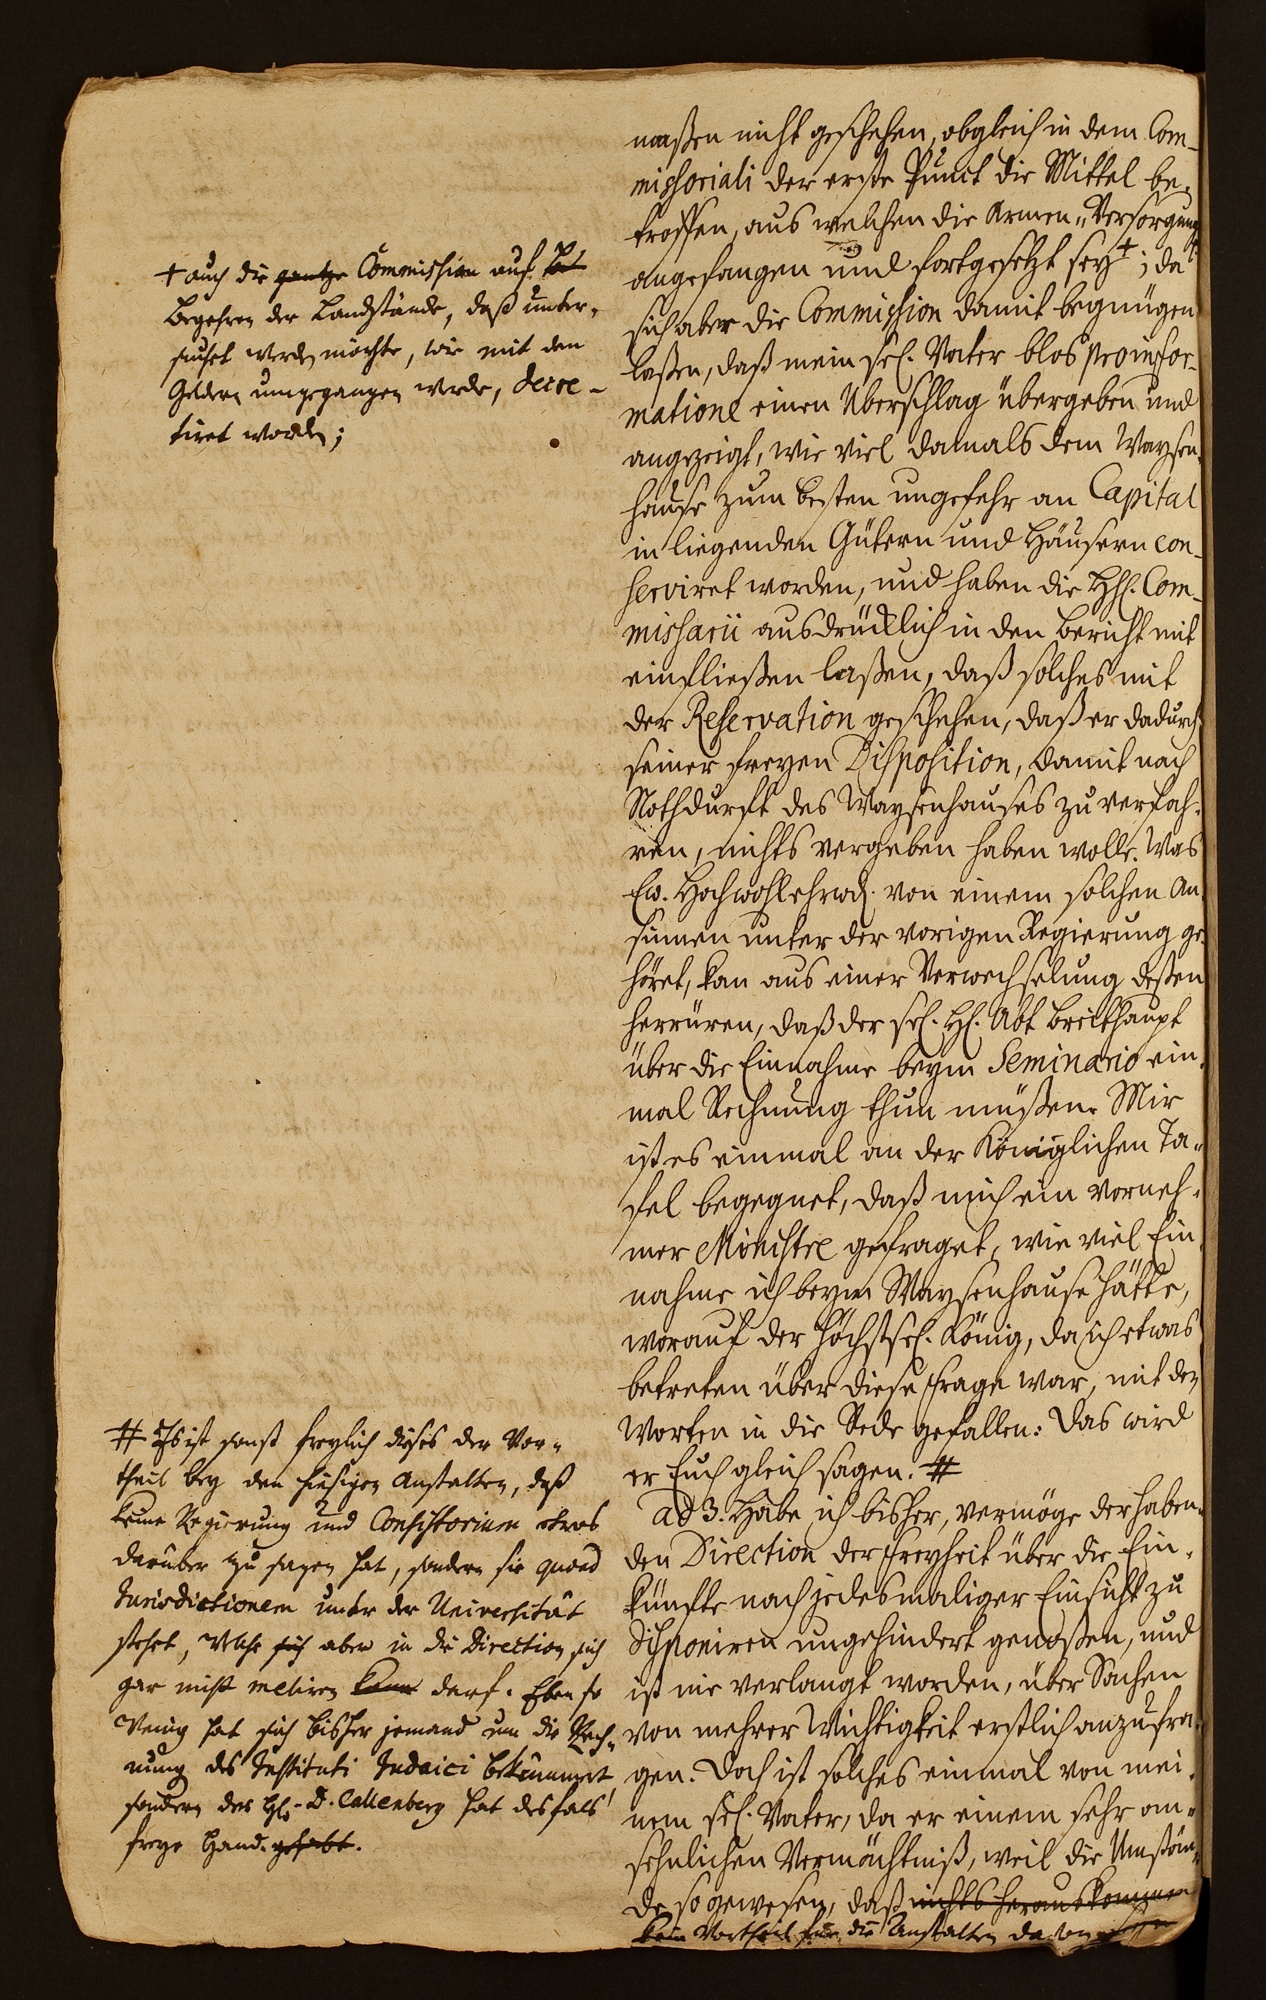 maßen nicht geschehen, obgleich in dem Com-
missoriali der erste Punct die Mittel be-
troffen, aus welchen die Armen-Versorgung
angefangen und fortgesetzt sey +; da
sich aber die Commission damit begnügen
laßen, daß mein sel. Vater blos pro infor-
matione einen Überschlag übergeben und
angezeigt, wie viel damals dem Waysen-
hause zum besten ungefehr an Capital
in liegenden Gütern und Häusern con-
serviret worden, und haben die HH. Com-
missarii ausdrücklich in den Bericht mit
einfließen laßen, daß solches mit
der Reservation geschehen, daß er dadurch
seiner freyen Disposition, damit nach
Nothdurft des Waysenhauses zu verfah-
ren, nichts vergeben haben wolle. Was
Ew. Hochwohlehrwd. von einem solchen An-
sinnen unter der vorigen Regierung ge-
höret, kan aus einer Verwechselung deßen
herrüren, daß der sel. H. Abt Breithaupt
über die Einnahme beym Seminario ein-
mal Rechnung thun müßen. Mir
ist es einmal an der Königlichen Ta-
fel begegnet, daß mich ein vorneh-
mer Ministre gefraget, wie viel Ein-
nahme ich beym Waysenhause hätte,
worauf der Höchstsel. König, da ich etwas
betreten über diese Frage war, mit den
Worten in die Rede gefallen: Das wird
er Euch gleich sagen. #
ad 3. Habe ich bisher, vermöge der haben-
den Direction der Freyheit über die Ein-
künfte nach jedesmaliger Einsicht zu
disponiren ungehindert genoßen, und
ist nie verlangt worden, über Sachen
von mehrer Wichtigkeit erstlich anzufra-
gen. Doch ist solches einmal von mei-
nem sel. Vater, da er einem sehr an-
sehnlichen Vermächtniß, weil die Umstän-
de so gewesen, daß nichts herauskommen
kein Vortheil für die Anstalten davon
+ auch die gantze Commission auf
Begehren der Landstände, daß unter-
suchet werden möchte, wie mit den
Geldern umgegangen werde, decre-
tiret worden;
# Es ist sonst freylich dieses der Vor-
theil bey den hiesigen Anstalten, daß
keine Regierung und Consistorium etwas
darüber zu sagen hat, sondern sie quoad
Jurisdictionem unter der Universität
stehet, welche sich aber in die Direction sich
gar nicht meliren kann darf. Eben so
wenig hat sich bisher jemand um die Rech-
nung des Instituti Judaici bekümmert
sondern der H. D. Callenberg hat desfals
freye Hand gehabt.